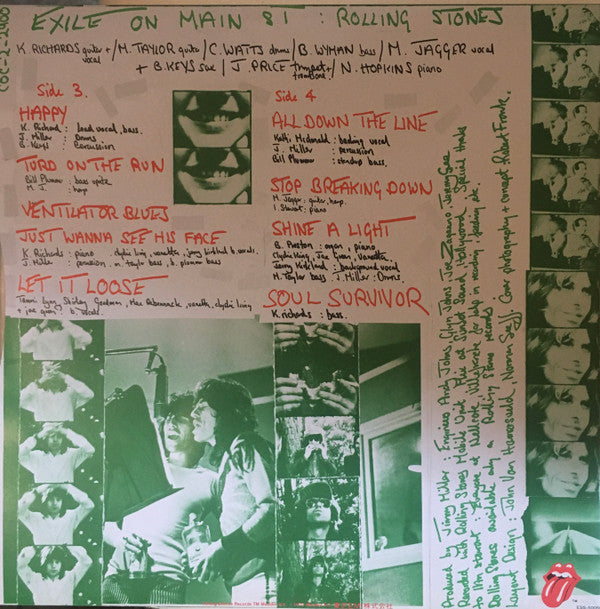 COC-2-2900
EXILE ON MAIN ST : ROLLING STONES
K. RICHARDS guitar + vocal / M. TAYLOR guitar / C. WATTS drums / B. WYMAN bass / M. JAGGER vocal
+ B. KEYS sax / J. PRICE trumpet + trombone / N. HOPKINS piano
Side 3.
HAPPY
K. Richard : lead vocal, bass.
J. Miller : Drums
B. Keys : Percussion
TURD ON THE RUN
Bill Plummer : bass upright
M. J. : harp
VENTILATOR BLUES
JUST WANNA SEE HIS FACE
K. Richards : piano clydie king, vanetta, jerry kirkland b. vocals.
J. Miller : percussion, m. taylor bass, b. plummer bass
LET IT LOOSE
Tammi Lynn, Shirley Goodman, Mac Rebennack, vanetta, clydie king
+ joe green b. vocals.
Side 4
ALL DOWN THE LINE
Kathi Mcdonald : backing vocal
J. Miller : percussion
Bill Plummer : standup bass.
STOP BREAKING DOWN
M. Jagger : guitar, harp.
I. Stewart : piano
SHINE A LIGHT
B. Preston : organ, piano
Clydie King, Joe Green, Vanetta,
Jerry Kirkland : background vocal
M. Taylor bass, J. Miller : Drums.
SOUL SURVIVOR
K. richards : bass.
Produced by Jimmy Miller Engineers Andy Johns, Glyn Johns, Joe Zagarino, Jeremy Gee
Recorded with Rolling Stones Mobile Unit Mix at Sunset Sound Hollywood. Special thanks
to
Rolling Stones available only on Rolling Stones records
Layout Design : John Van Hamersveld / Norman Seeff. Cover photography + concept Robert Frank.